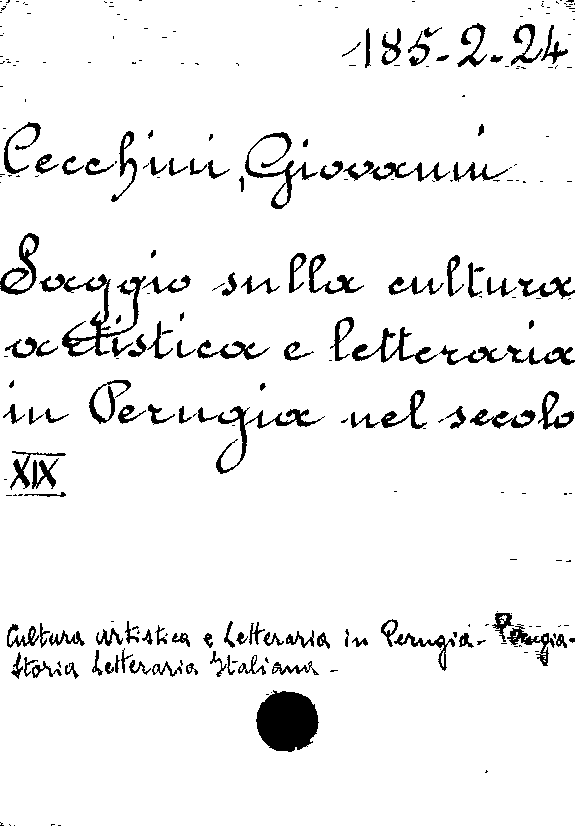 185-2-24
Cecchini, Giovanni
Saggio sulla cultura
artistica e letteraria
in Perugia nel secolo
XIX
Cultura artistica e Letteraria in Perugia - Perugia -
Storia Letteraria Italiana -